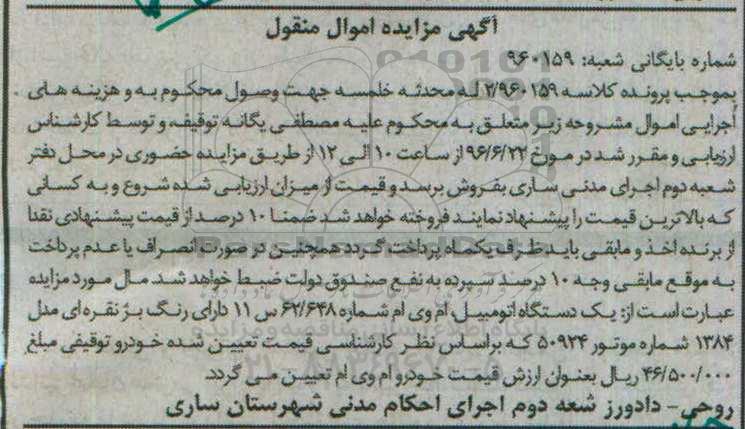 آگهی مزایده اموال منقول
شماره بایگانی شعبه: ۹۶۰۱۵۹
بموجب پرونده کلاسه ۲/۹۶۰۱۵۹ له محدثه خلمسه جهت وصول محکوم به و هزینه های
اجرایی اموال مشروحه زیر متعلق به محکوم علیه مصطفی یگانه توقیف و توسط کارشناس
ارزیابی و مقرر شد در مورخ ۹۶/۶/۲۲ از ساعت ۱۰ الی ۱۲ از طریق مزایده حضوری در محل دفتر
شعبه دوم اجرای مدنی ساری بفروش برسد و قیمت از میزان ارزیابی شده شروع و به کسانی
که بالاترین قیمت را پیشنهاد نمایند فروخته خواهد شد ضمنا ۱۰ درصد از قیمت پیشنهادی نقدا
از برنده اخذ و مابقی باید ظرف یکماه پرداخت گردد همچنین در صورت انصراف یا عدم پرداخت
به موقع مابقی وجه ۱۰ درصد سپرده به نفع صندوق دولت ضبط خواهد شد. مال مورد مزایده
عبارت است از: یک دستگاه اتومبیل ام وی ام شماره ۶۲/۶۴۸ س ۱۱ دارای رنگ بژ نقره ای مدل
۱۳۸۴ شماره موتور ۵۰۹۲۴ که براساس نظر کارشناسی قیمت تعیین شده خودرو توقیفی مبلغ
۴۶/۵۰۰/۰۰۰ ریال بعنوان ارزش قیمت خودرو ام وی ام تعیین می گردد.
روحی- دادورز شعه دوم اجرای احکام مدنی شهرستان ساری